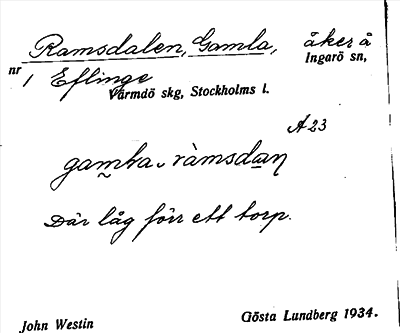 Ramsdalen, Gamla, åker å
Ingarö sn,
nr 1 Eflinge
Värmdö skg, Stockholms l.
A 23
gamla ràmsdaŋ
Där låg förr ett torp.
John Westin
Gösta Lundberg 1934.